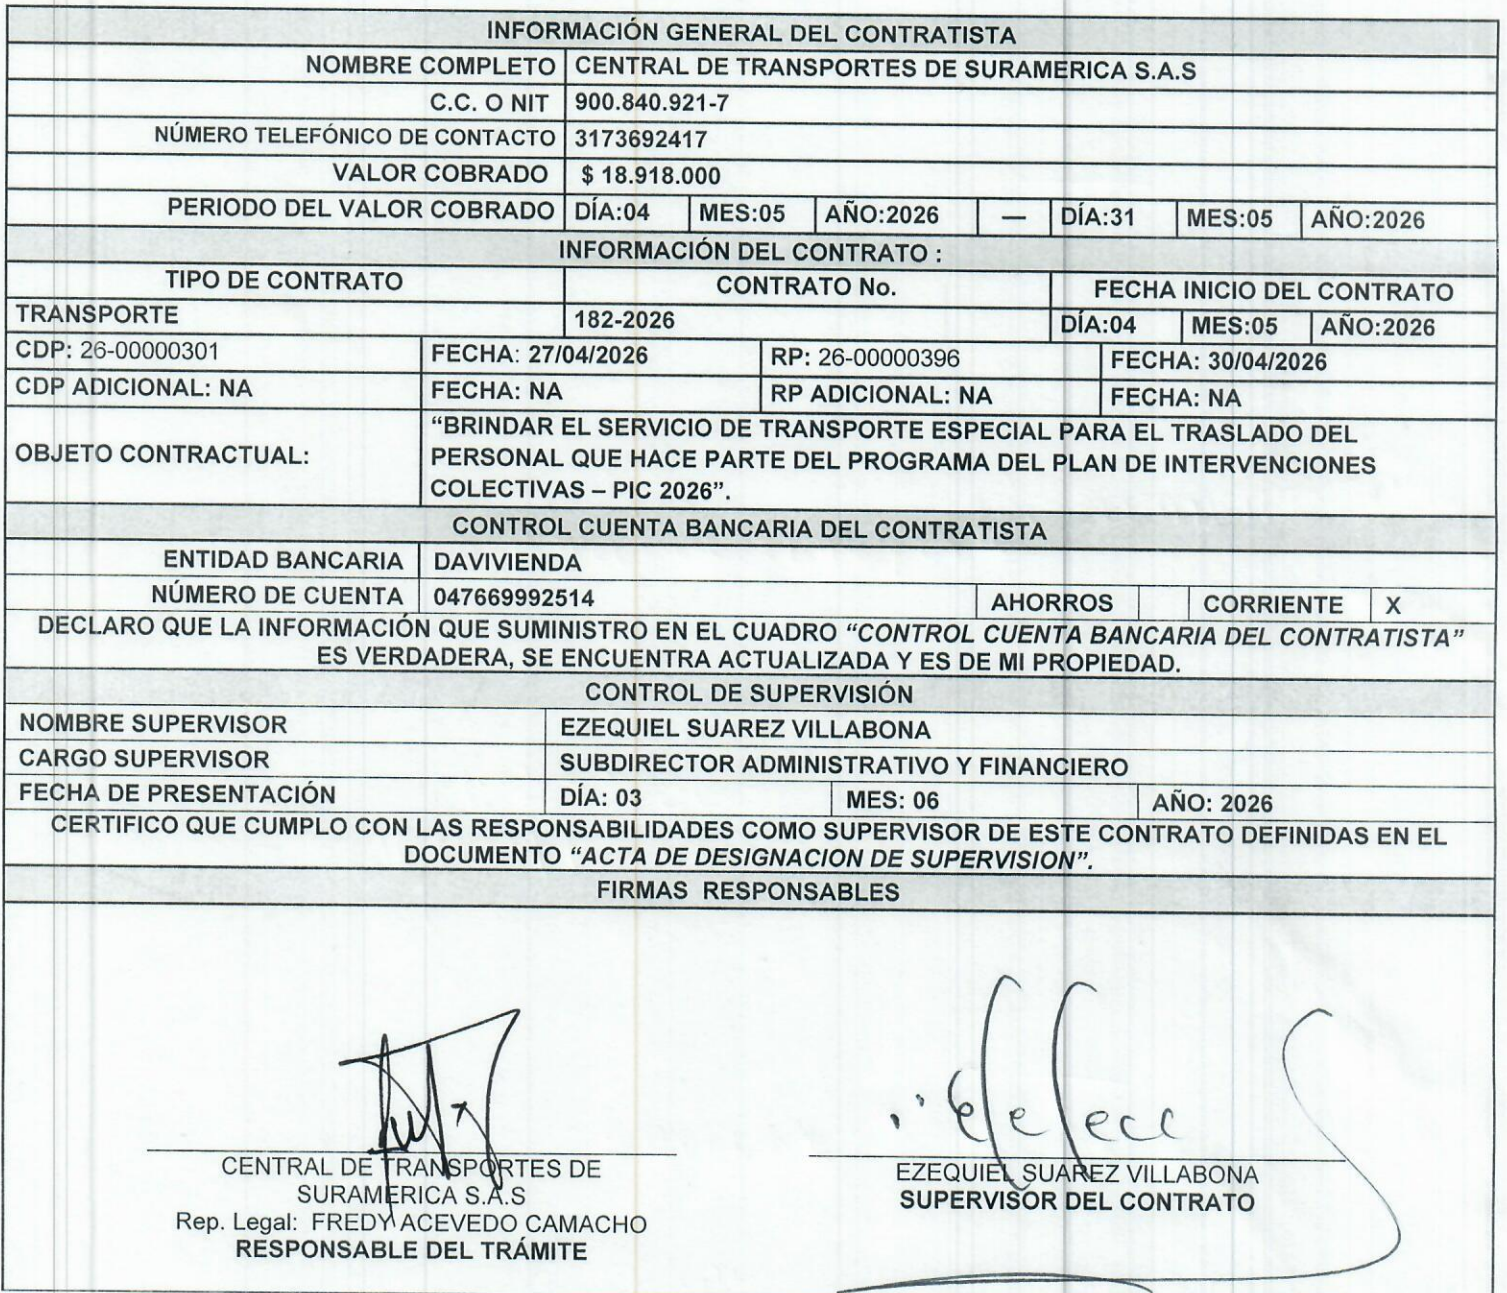 INFORMACIÓN GENERAL DEL CONTRATISTA
NOMBRE COMPLETO CENTRAL DE TRANSPORTES DE SURAMERICA S.A.S
C.C. O NIT 900.840.921-7
NÚMERO TELEFÓNICO DE CONTACTO 3173692417
VALOR COBRADO $ 18.918.000
PERIODO DEL VALOR COBRADO DÍA:04 MES:05 AÑO:2026 — DÍA:31 MES:05 AÑO:2026
INFORMACIÓN DEL CONTRATO :
TIPO DE CONTRATO CONTRATO No. FECHA INICIO DEL CONTRATO
TRANSPORTE 182-2026 DÍA:04 MES:05 AÑO:2026
CDP: 26-00000301 FECHA: 27/04/2026 RP: 26-00000396 FECHA: 30/04/2026
CDP ADICIONAL: NA FECHA: NA RP ADICIONAL: NA FECHA: NA
OBJETO CONTRACTUAL: “BRINDAR EL SERVICIO DE TRANSPORTE ESPECIAL PARA EL TRASLADO DEL
PERSONAL QUE HACE PARTE DEL PROGRAMA DEL PLAN DE INTERVENCIONES
COLECTIVAS – PIC 2026”.
CONTROL CUENTA BANCARIA DEL CONTRATISTA
ENTIDAD BANCARIA DAVIVIENDA
NÚMERO DE CUENTA 047669992514 AHORROS CORRIENTE X
DECLARO QUE LA INFORMACIÓN QUE SUMINISTRO EN EL CUADRO “CONTROL CUENTA BANCARIA DEL CONTRATISTA”
ES VERDADERA, SE ENCUENTRA ACTUALIZADA Y ES DE MI PROPIEDAD.
CONTROL DE SUPERVISIÓN
NOMBRE SUPERVISOR EZEQUIEL SUAREZ VILLABONA
CARGO SUPERVISOR SUBDIRECTOR ADMINISTRATIVO Y FINANCIERO
FECHA DE PRESENTACIÓN DÍA: 03 MES: 06 AÑO: 2026
CERTIFICO QUE CUMPLO CON LAS RESPONSABILIDADES COMO SUPERVISOR DE ESTE CONTRATO DEFINIDAS EN EL
DOCUMENTO “ACTA DE DESIGNACION DE SUPERVISION”.
FIRMAS RESPONSABLES
CENTRAL DE TRANSPORTES DE
SURAMERICA S.A.S
Rep. Legal: FREDY ACEVEDO CAMACHO
RESPONSABLE DEL TRÁMITE
EZEQUIEL SUAREZ VILLABONA
SUPERVISOR DEL CONTRATO